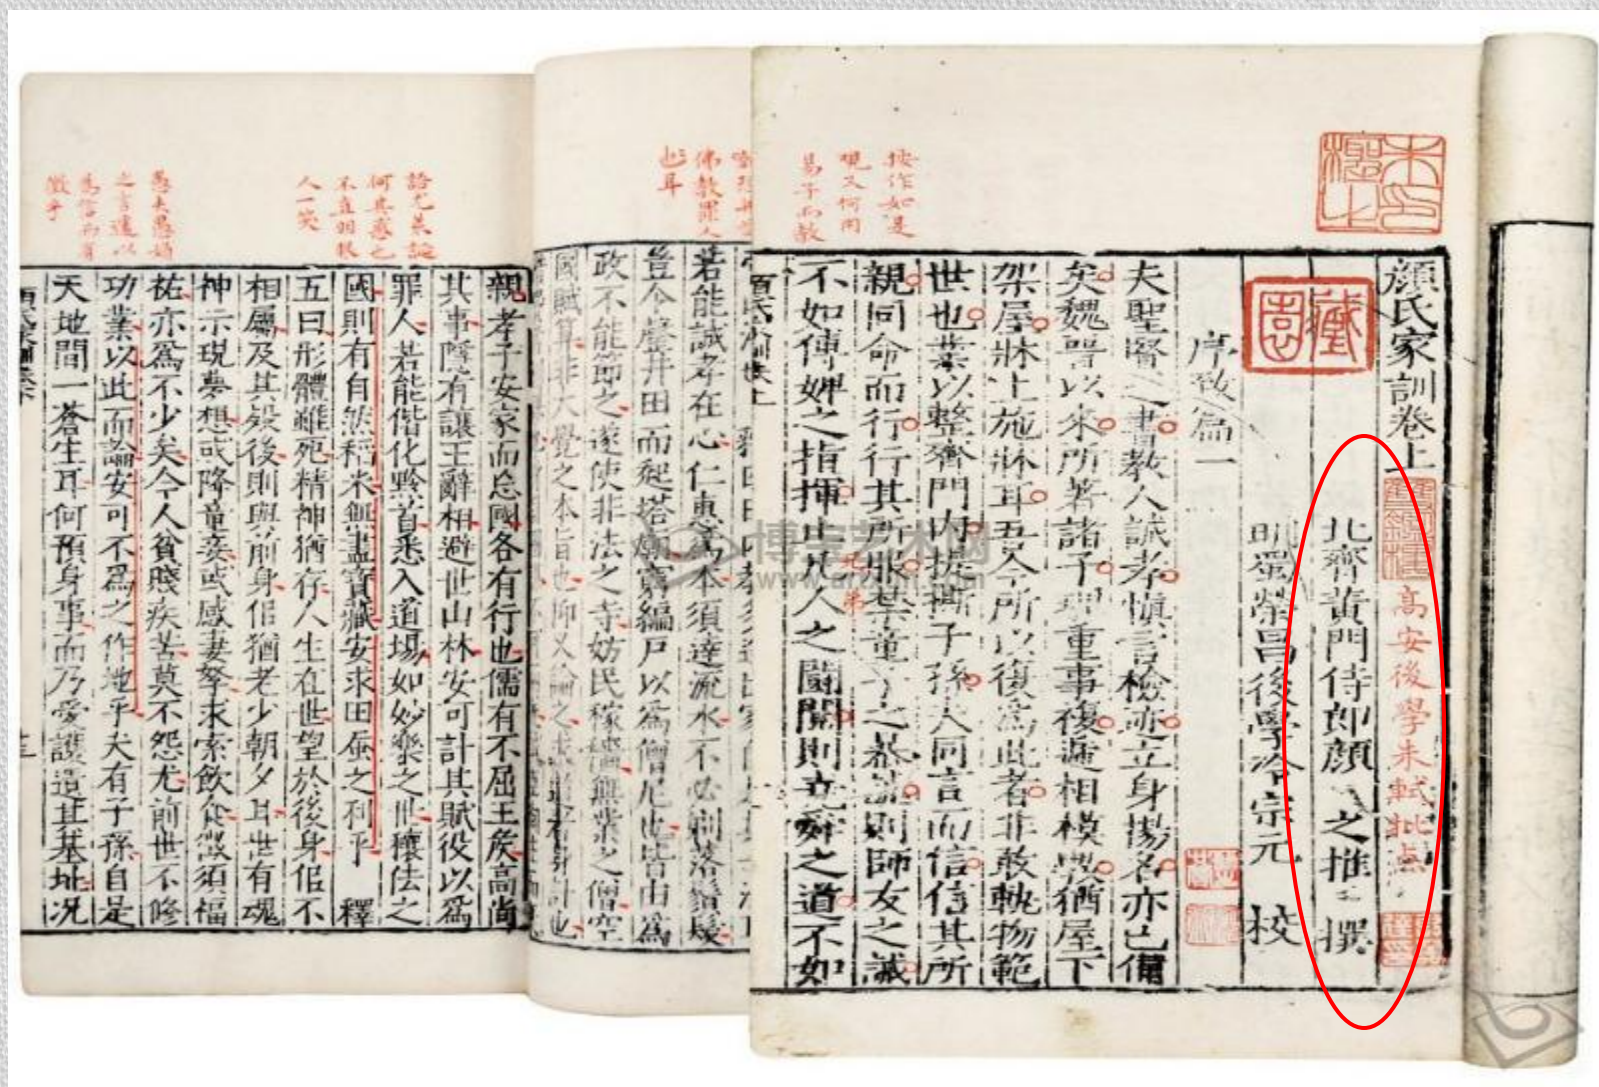 顏氏家訓卷上
高安後學朱軾批点
北齊黃門侍郎顏之推撰
明蜀榮昌後學冷宗元 校
序致篇一
夫聖賢之書教人誠孝慎言檢迹立身揚名亦已備
矣魏晉以來所著諸子理重事複遞相模斆猶屋下
架屋牀上施牀耳吾今所以復爲此者非敢軌物範
世也業以整齊門內提撕子孫夫同言而信信其所
親同命而行行其所服禁童子之暴謔則師友之誡
不如傅婢之指揮止凡人之鬭鬩則堯舜之道不如
兄弟
按作如是
觀又何用
易子而教
藏園
佛教罪人
也耳
若能誠孝在心仁惠爲本須達流水不必剃落鬚髮
豈令罄井田而起塔廟窮編戶以爲僧尼也皆由爲
政不能節之遂使非法之寺妨民稼穡無業之僧空
國賦算非大覺之本旨也抑又論之
何其愚也
人一笑
愚夫愚婦
之言遽以
爲信而有
徵乎
親孝子安家而忘國各有行也儒有不屈王矦高尚
其事隱有讓王辭相避世山林安可計其賦役以爲
罪人若能偕化黔首悉入道場如妙樂之世穰法之
國則有自然稻米無盡寶藏安求田蚕之利乎 釋
五曰形體雖死精神猶存人生在世望於後身佀不
相屬及其殁後則與前身佀猶老少朝夕耳世有魂
神示現夢想或降童妾或感妻孥求索飲食徵須福
祐亦爲不少矣今人貧賤疾苦莫不怨尤前世不修
功業以此而論安可不爲之作地乎夫有子孫自是
天地間一蒼生耳何預身事而乃愛護遺其基址况
博宝艺术网